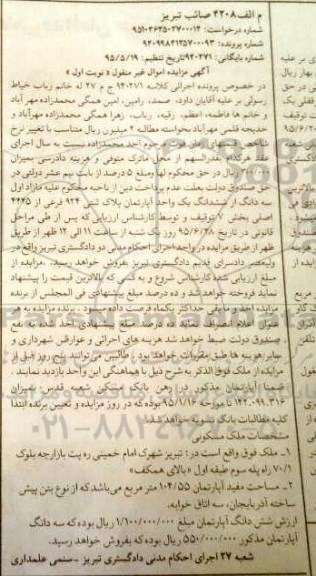 م الف ۴۲۰۸ صائب تبریز
شماره درخواست: ۹۵۱۰۳۶۳۵۰۲۷۰۰۰۱۴
شماره پرونده: ۹۲۰۹۹۸۴۱۳۵۷۰۰۰۹۳
شماره بایگانی: ۹۲۰۲۷۱ تاریخ تنظیم: ۹۵/۵/۱۹
آگهی مزایده اموال غیر منقول «نوبت اول»
در خصوص پرونده اجرائی کلاسه ۹۴۰۲۷۱ ج م ۲۷ له خانم رباب خیاط
رسولی بر علیه آقایان داود، صمد، رامین، امین همگی محمدزاده مهر آباد
و خانم ها فاطمه، اعظم، رقیه، رباب، زهرا همگی محمدزاده مهرآباد و
خدیجه قلمی مهرآباد بخواسته مطالبه ۲ میلیون ریال متناسب با تغییر نرخ
شاخص از بهای زمان فوت مرحوم احد محمدزاده نسبت به سال اجرای
عقد هرکدام بقدرالسهم از محل ماترک متوفی و هزینه دادرسی بمیزان
۲۰۰/۰۰۰ ریال در حق محکوم لها ومبلغ ۵ درصد از بابت نیم عشر دولتی در
حق صندوق دولت بعلت عدم پرداخت دین از ناحیه محکوم علیه مازاد اول
سه دانگ از ششدانگ یک واحد آپارتمان پلاک ثبتی ۹۲۴ فرعی از ۴۴۲۵
اصلی بخش ۷ توقیف و توسط کارشناس ارزیابی که پس از طی مراحل
قانونی در تاریخ ۹۵/۶/۲۸ روز یک شنبه از ساعت ۱۱ الی ۱۲ ظهر از طریق
ظهر از طریق مزایده در واحد اجرای احکام مدنی دو دادگستری تبریز واقع در
ولیعصر دادسرای قدیم دادگستری تبریز بفروش خواهد رسید. مزایده از
مبلغ ارزیابی شده کارشناس شروع و به کسی که بالاترین قیمت را پیشنهاد
نماید فروخته خواهد شد و ده درصد مبلغ پیشنهادی فی المجلس از برنده
مزایده اخذ و مابقی حداکثر یکماه فرصت داده میشود. برنده مزایده به هر
عنوان اعلام انصراف نماید ده درصد مبلغ پیشنهادی اخذ شده به نفع
صندوق دولت ضبط خواهد شد هزینه های اجرائی و عوارض شهرداری و
سایر هزینه ها طبق مقررات خواهد بود. طالبین می‌توانند پنج روز قبل از
مزایده از ملک فوق الذکر به شرح ذیل با هماهنگی این واحد بازدید نمایند.
ضمنا آپارتمان مذکور در رهن بانک مسکن شعبه قدس بمیزان
۱۴۲.۰۹۱.۳۱۶ تا مورخه ۹۵/۱/۱۶ بوده که در روز مزایده و تعیین برنده ابتدا
کلیه مطالبات بانک تسویه خواهد شد.
مشخصات ملک مسکونی
۱- ملک فوق واقع است در: تبریز شهرک امام خمینی ره پت بازارچه بلوک
۷۰/۱ راه پله سوم طبقه اول «بالای همکف»
۲- مساحت مفید آپارتمان ۱۰۴/۵۵ متر مربع می‌باشد که از نوع بتن پیش
ساخته آذربایجان، سه اتاق خوابه.
ارزش شش دانگ آپارتمان مبلغ ۱/۱۰۰/۰۰۰/۰۰۰ ریال بوده که سه دانگ
آپارتمان مذکور ۵۵۰/۰۰۰/۰۰۰ ریال بوده که بفروش خواهد رسید.
شعبه ۲۷ اجرای احکام مدنی دادگستری تبریز - سنمی علمداری